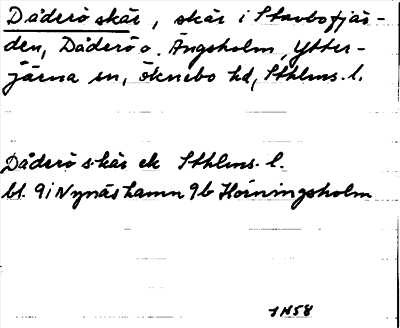 Dåderö skär, skär i Stavbofjär-
den, Dåderö o. Ängsholm, Ytter-
järna sn, Öknebo hd, Sthlms. l.
Dåderö skär ek Sthlms. l.
bl. 9i Nynäshamn 9b Hörningsholm
1N58